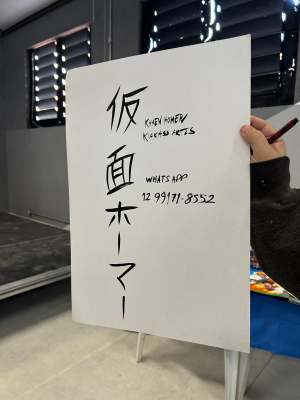 仮面ホーマー
KAMEN HOMEN
KICKASS ARTES
WHATSAPP
12 99171-8552